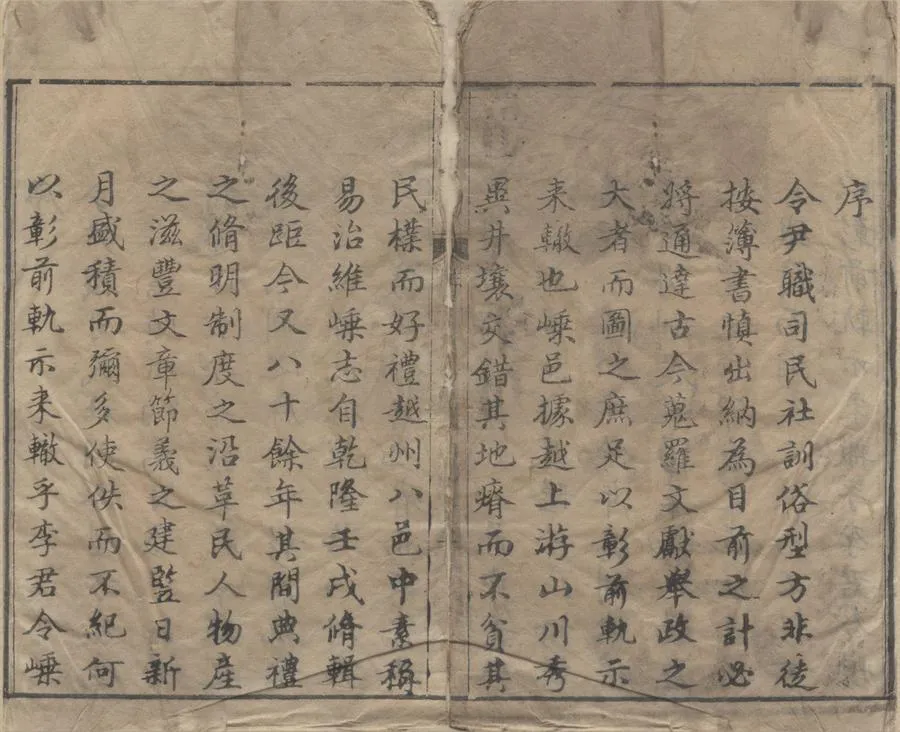 序
令尹職司民社訓俗型方非徒
按簿書慎出納為目前之計必
將通達古今蒐羅文獻舉政之
大者而圖之庶足以彰前軌示
来轍也嵊邑據越上游山川秀
異井壤交錯其地瘠而不貧其
民樸而好禮越州八邑中素稱
易治維嵊志自乾隆壬戌脩輯
後距今又八十餘年其間典禮
之脩明制度之沿革民人物產
之滋豐文章節義之建竪日新
月盛積而彌多使佚而不紀何
以彰前軌示来轍乎李君令嵊